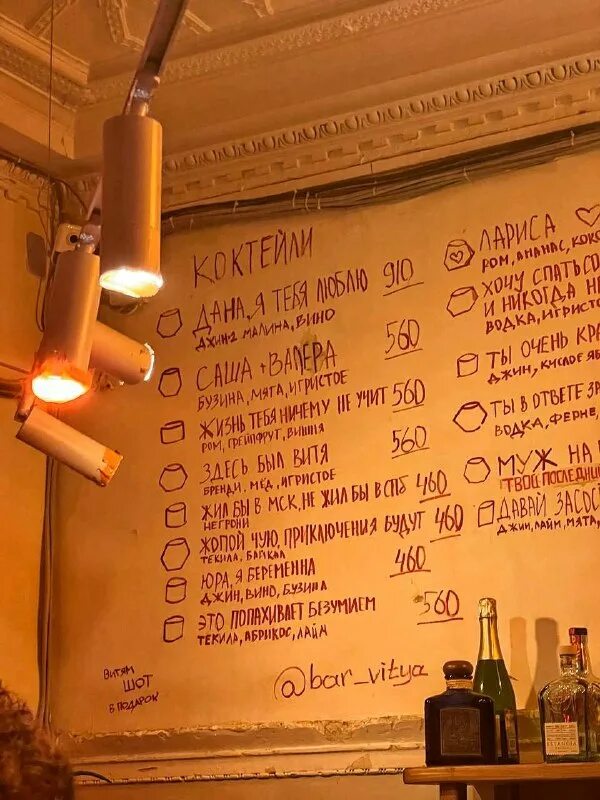 КОКТЕЙЛИ
ДАНА, Я ТЕБЯ ЛЮБЛЮ 910
ДЖИН, МАЛИНА, ВИНО
САША + ВАЛЕРА 560
БУЗИНА, МЯТА, ИГРИСТОЕ
ЖИЗНЬ ТЕБЯ НИЧЕМУ НЕ УЧИТ 560
РОМ, ГРЕЙПФРУТ, ВИШНЯ
ЗДЕСЬ БЫЛ ВИТЯ 560
БРЕНДИ, МЁД, ИГРИСТОЕ
ЖИЛ БЫ В МСК, НЕ ЖИЛ БЫ В СПБ 460
НЕГРОНИ
ЖОПОЙ ЧУЮ, ПРИКЛЮЧЕНИЯ БУДУТ 460
ТЕКИЛА, БАЙКАЛ
ЮРА, Я БЕРЕМЕННА 460
ДЖИН, ВИНО, БУЗИНА
ЭТО ПОПАХИВАЕТ БЕЗУМИЕМ 560
ТЕКИЛА, АБРИКОС, ЛАЙМ
ВИТЯМ
ШОТ
В ПОДАРОК
@bar_vitya
ЛАРИСА
РОМ, АНАНАС, КОКО
ХОЧУ СПАТЬ СО
И НИКОГДА НЕ
ВОДКА, ИГРИСТО
ТЫ ОЧЕНЬ КРА
ДЖИН, КИСЛОЕ ЯБ
ТЫ В ОТВЕТЕ ЗА
ВОДКА, ФЕРНЕ
МУЖ НА
ТВОЙ ПОСЛЕДНИЙ
ДАВАЙ ЗАСОС
ДЖИН, ЛАЙМ, МЯТА,